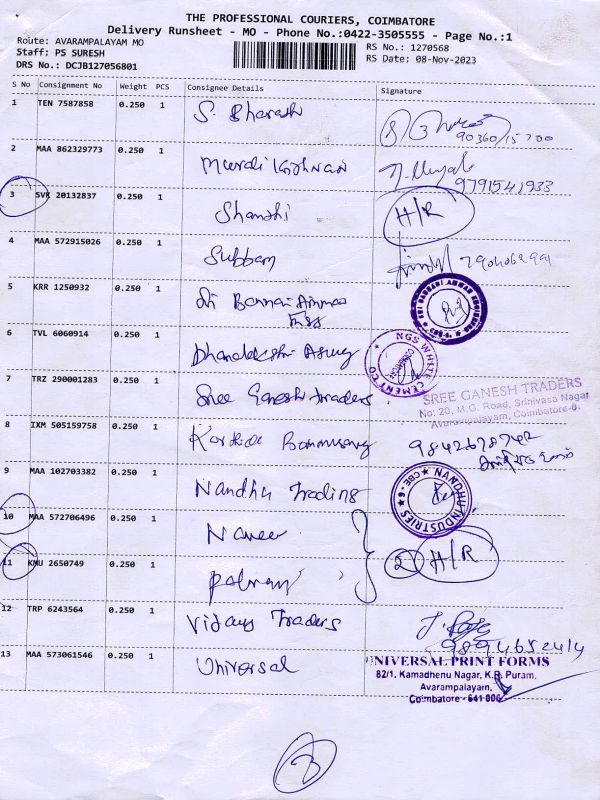 THE PROFESSIONAL COURIERS, COIMBATORE
Delivery Runsheet - MO - Phone No.:0422-3505555 - Page No.:1
Route: AVARAMPALAYAM MO
RS No.: 1270568
Staff: PS SURESH
RS Date: 08-Nov-2023
DRS No.: DCJB127056801
S No Consignment No Weight PCS Consignee Details Signature
1 TEN 7587858 0.250 1 S. Bharath
90360/15700
2 MAA 862329773 0.250 1 Murali Krishnan
9791541933
3 SVK 20132837 0.250 1 Shanthi H/R
4 MAA 572915026 0.250 1 Subbam
5 KRR 1250932 0.250 1 Sri Bannari Amman
Engg
6 TVL 6060914 0.250 1 Dhanalakshmi
NGS WHITE CEMENT CO
7 TRZ 290001283 0.250 1 Sree Ganesh Traders
SREE GANESH TRADERS
No: 20, M.G. Road, Srinivasa Nagar
Avarampalayam, Coimbatore-6.
8 IXM 505159758 0.250 1 Karthick
9842678742
9 MAA 102703382 0.250 1 Nandhu Trading
NANDHU INDUSTRIES CBE-6
10 MAA 572706496 0.250 1 Naveen
2 H/R
11 KMU 2650749 0.250 1
12 TRP 6243564 0.250 1 Vijay Traders
9894652414
13 MAA 573061546 0.250 1 Universal
UNIVERSAL PRINT FORMS
82/1, Kamadhenu Nagar, K.R. Puram,
Avarampalayam,
Coimbatore - 641 006
3